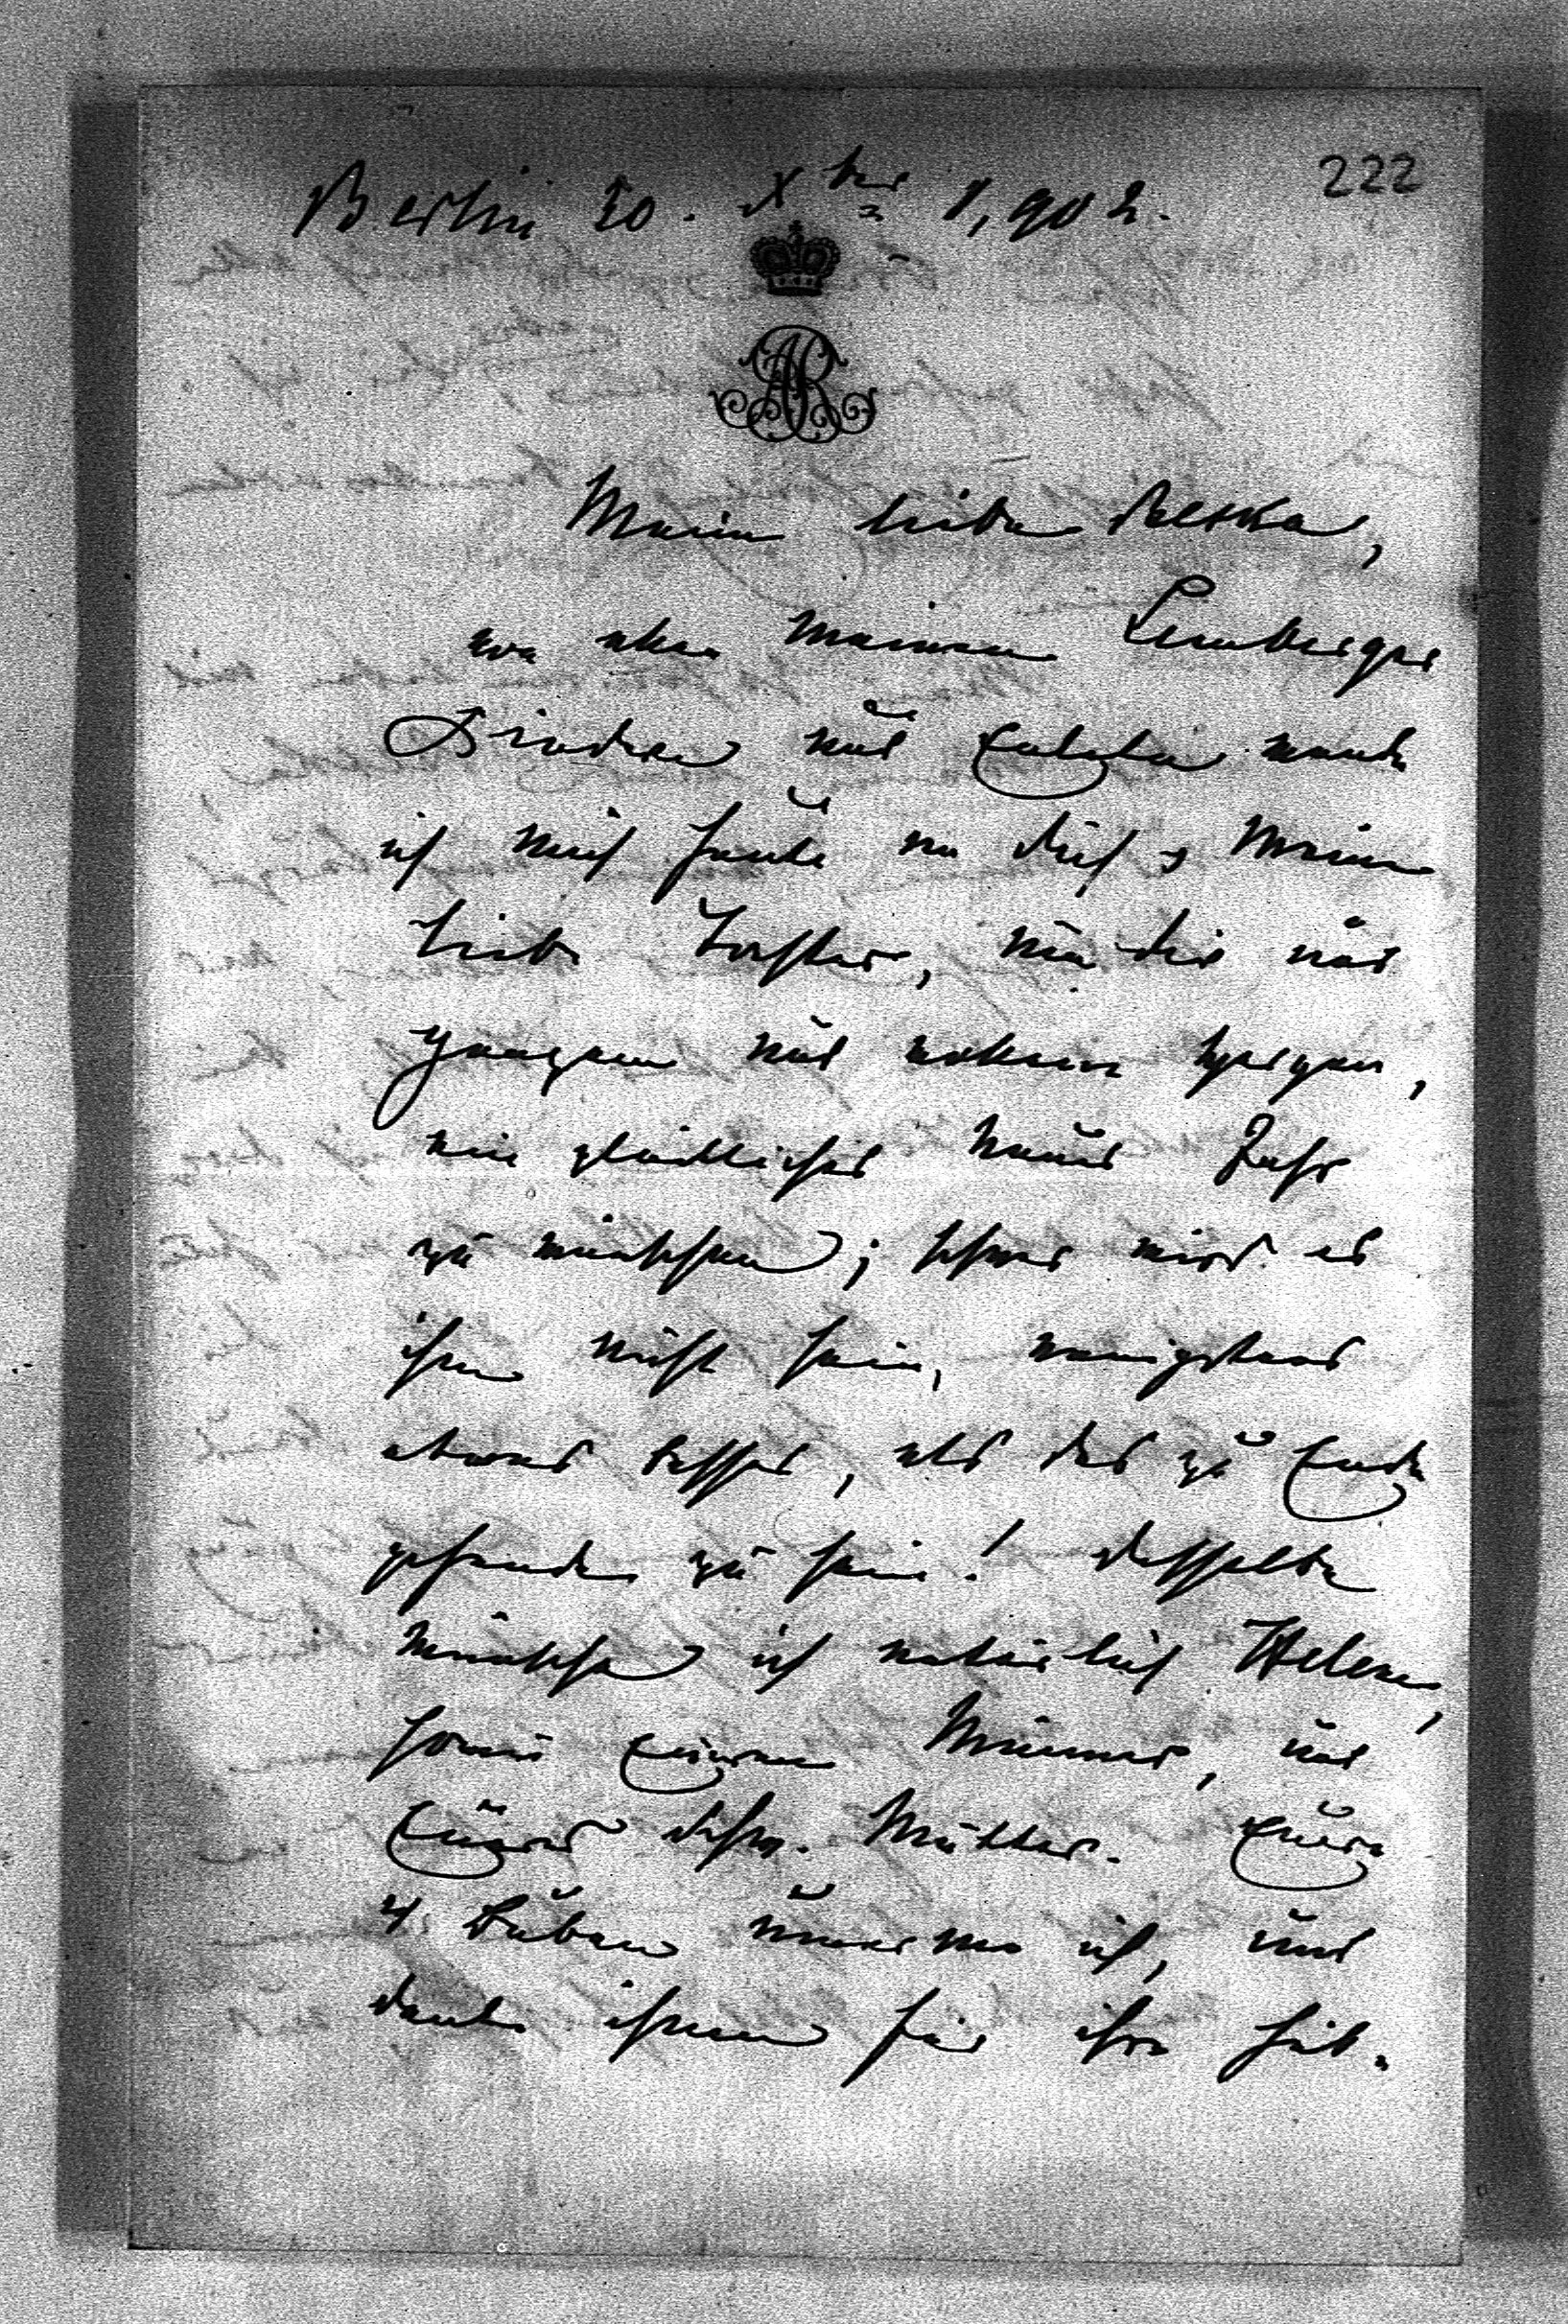 222
Berlin 30. Xber 1,902.
AR
Meine liebe Beska,
von allen meinen Lemberger
Kindern und Enkeln wende
ich mich heute an dich, meine
liebe Tochter, um dir und
ganzen und
ein glückliches neues Jahr
zu wünschen; schwer wird es
ihm nicht sein, wenigstens
etwas besser, als das zu Ende
gehende zu sein! dasselbe
wünsche ich natürlich Helene,
sowie Eueren Männer, und
Euerer Mutter. Euere
4 Buben umarme ich, und
danke ihnen für ihre hüb-